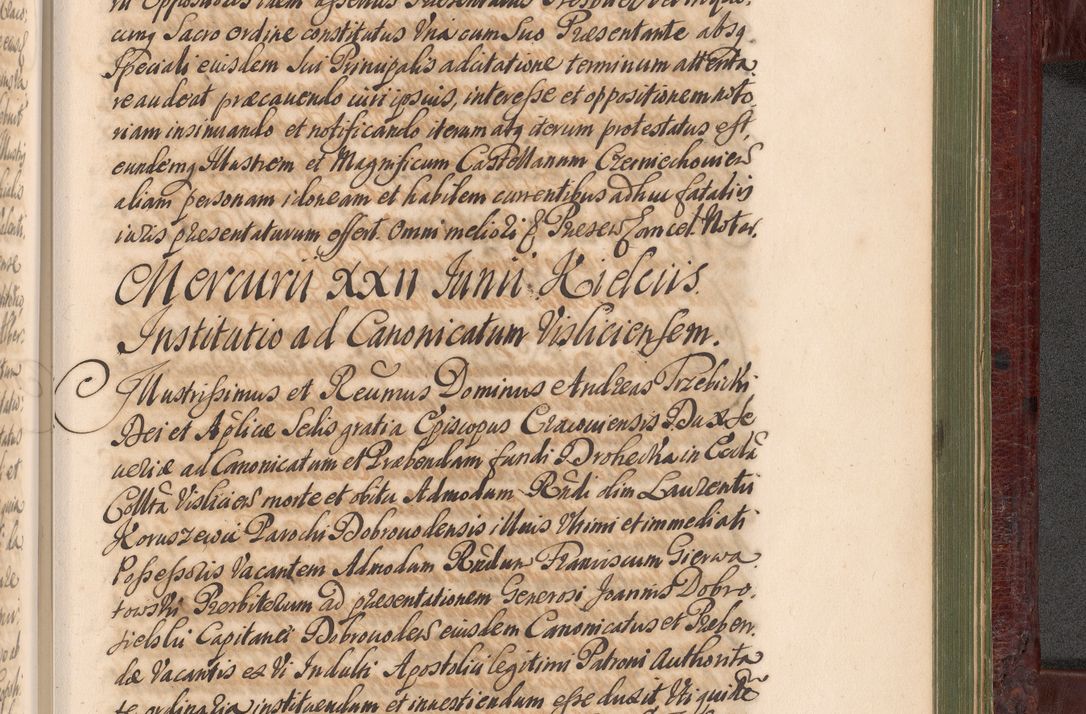 cunq Sacro ordine constitutus Una cum Suo Præsentante absq
Speciali eiusdem Sui Principalis adcitatione terminum attenta
re audeat præcauendo iuri ipsius, interesse et oppositionem noto
riam insinuando et notificando iterum atq iterum protestatus est,
eundemq Illustrem et Magnificum Castellanum Czerniechouiens
aliam personam idoneam et habilem currentibus adhuc fatalijs
iuris præsentaturum offert. Omni meliori
Mercurii XXII Junii Kielciis.
Institutio ad Canonicatum Visliciensem.
Illustrissimus et Reūmus Dominus Andreas Trzebicki
Dei et Aplicæ Sedis gratia Episcopus Cracouiensis Dux Se
ueriæ ad Canonicatum et Præbendam fundi Drohecka in Eccla
Collta Vislicien morte et obitu Admodum Rndi olim Laurentii
Koruszewii Parochi Dobrouodensis illius Ultimi et immediati
Possessoris Vacantem Admodum Rndum Franciscum Gierwa
towski Presbiterum ad præsentationem Generosi Joannis Dobro
sielski Capitanei Dobrouodens eiusdem Canonicatus et Preben
dæ Vacantis ex Vi Indulti Apostolici legitimi Patroni Authorita
te ordinaria instituendum et inuestiendum esse duxit Uti quidē